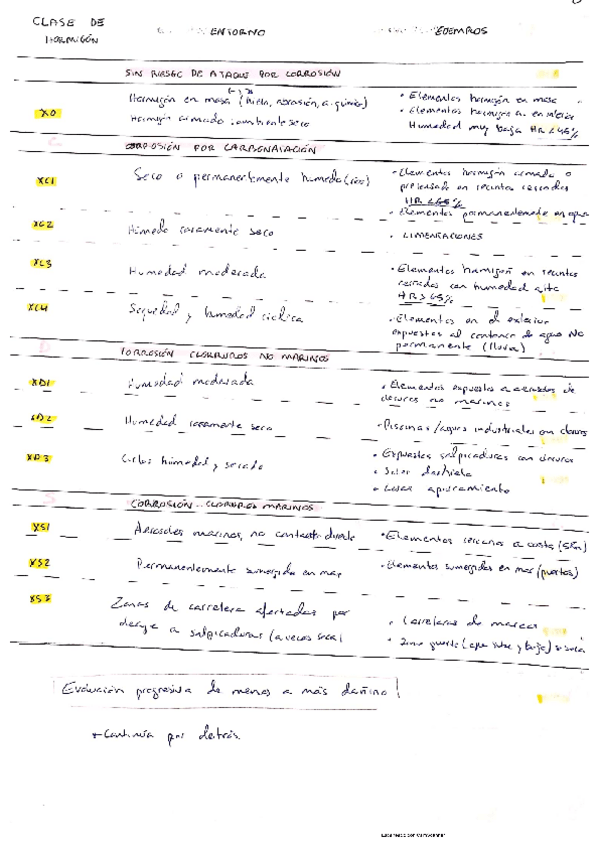 CLASE DE HORMIGÓN
ENTORNO
EJEMPLOS
SIN RIESGO DE ATAQUE POR CORROSIÓN
X0
Hormigón en masa (hielo, abrasión, a. química)
Hormigón armado ambiente seco
• Elementos hormigón en masa
• Elementos hormigón a. en interior
Humedad muy baja HR<45%
CORROSIÓN POR CARBONATACIÓN
XC1
Seco o permanentemente húmedo
• Elementos hormigón armado o
pretensado en recintos cerrados
HR<65%
• Elementos permanentemente en agua
XC2
Húmedo raramente seco
• CIMENTACIONES
XC3
Humedad moderada
• Elementos hormigón en recintos
cerrados con humedad alta
HR>65%
XC4
Sequedad y humedad cíclica
• Elementos en el exterior
expuestos al contacto de agua NO
permanente (lluvia)
CORROSIÓN CLORUROS NO MARINOS
XD1
Humedad moderada
• Elementos expuestos a aerosoles de
cloruros no marinos
XD2
Humedad raramente seco
• Piscinas / aguas industriales con cloruros
XD3
Ciclos humedad y secado
• Expuestos salpicaduras con cloruros
CORROSIÓN CLORUROS MARINOS
XS1
Aerosoles marinos, no contacto directo
• Elementos cercanos a costa (5Km)
XS2
Permanentemente sumergida en mar
• Elementos sumergidos en mar (puertos)
XS3
Zonas de carrera afectadas por
oleaje o salpicaduras (a veces seca)
• Carreras de mareas
• Zona puerto (que sube y baja)
Evaluación progresiva de menos a más dañino!
* Continúa por detrás.